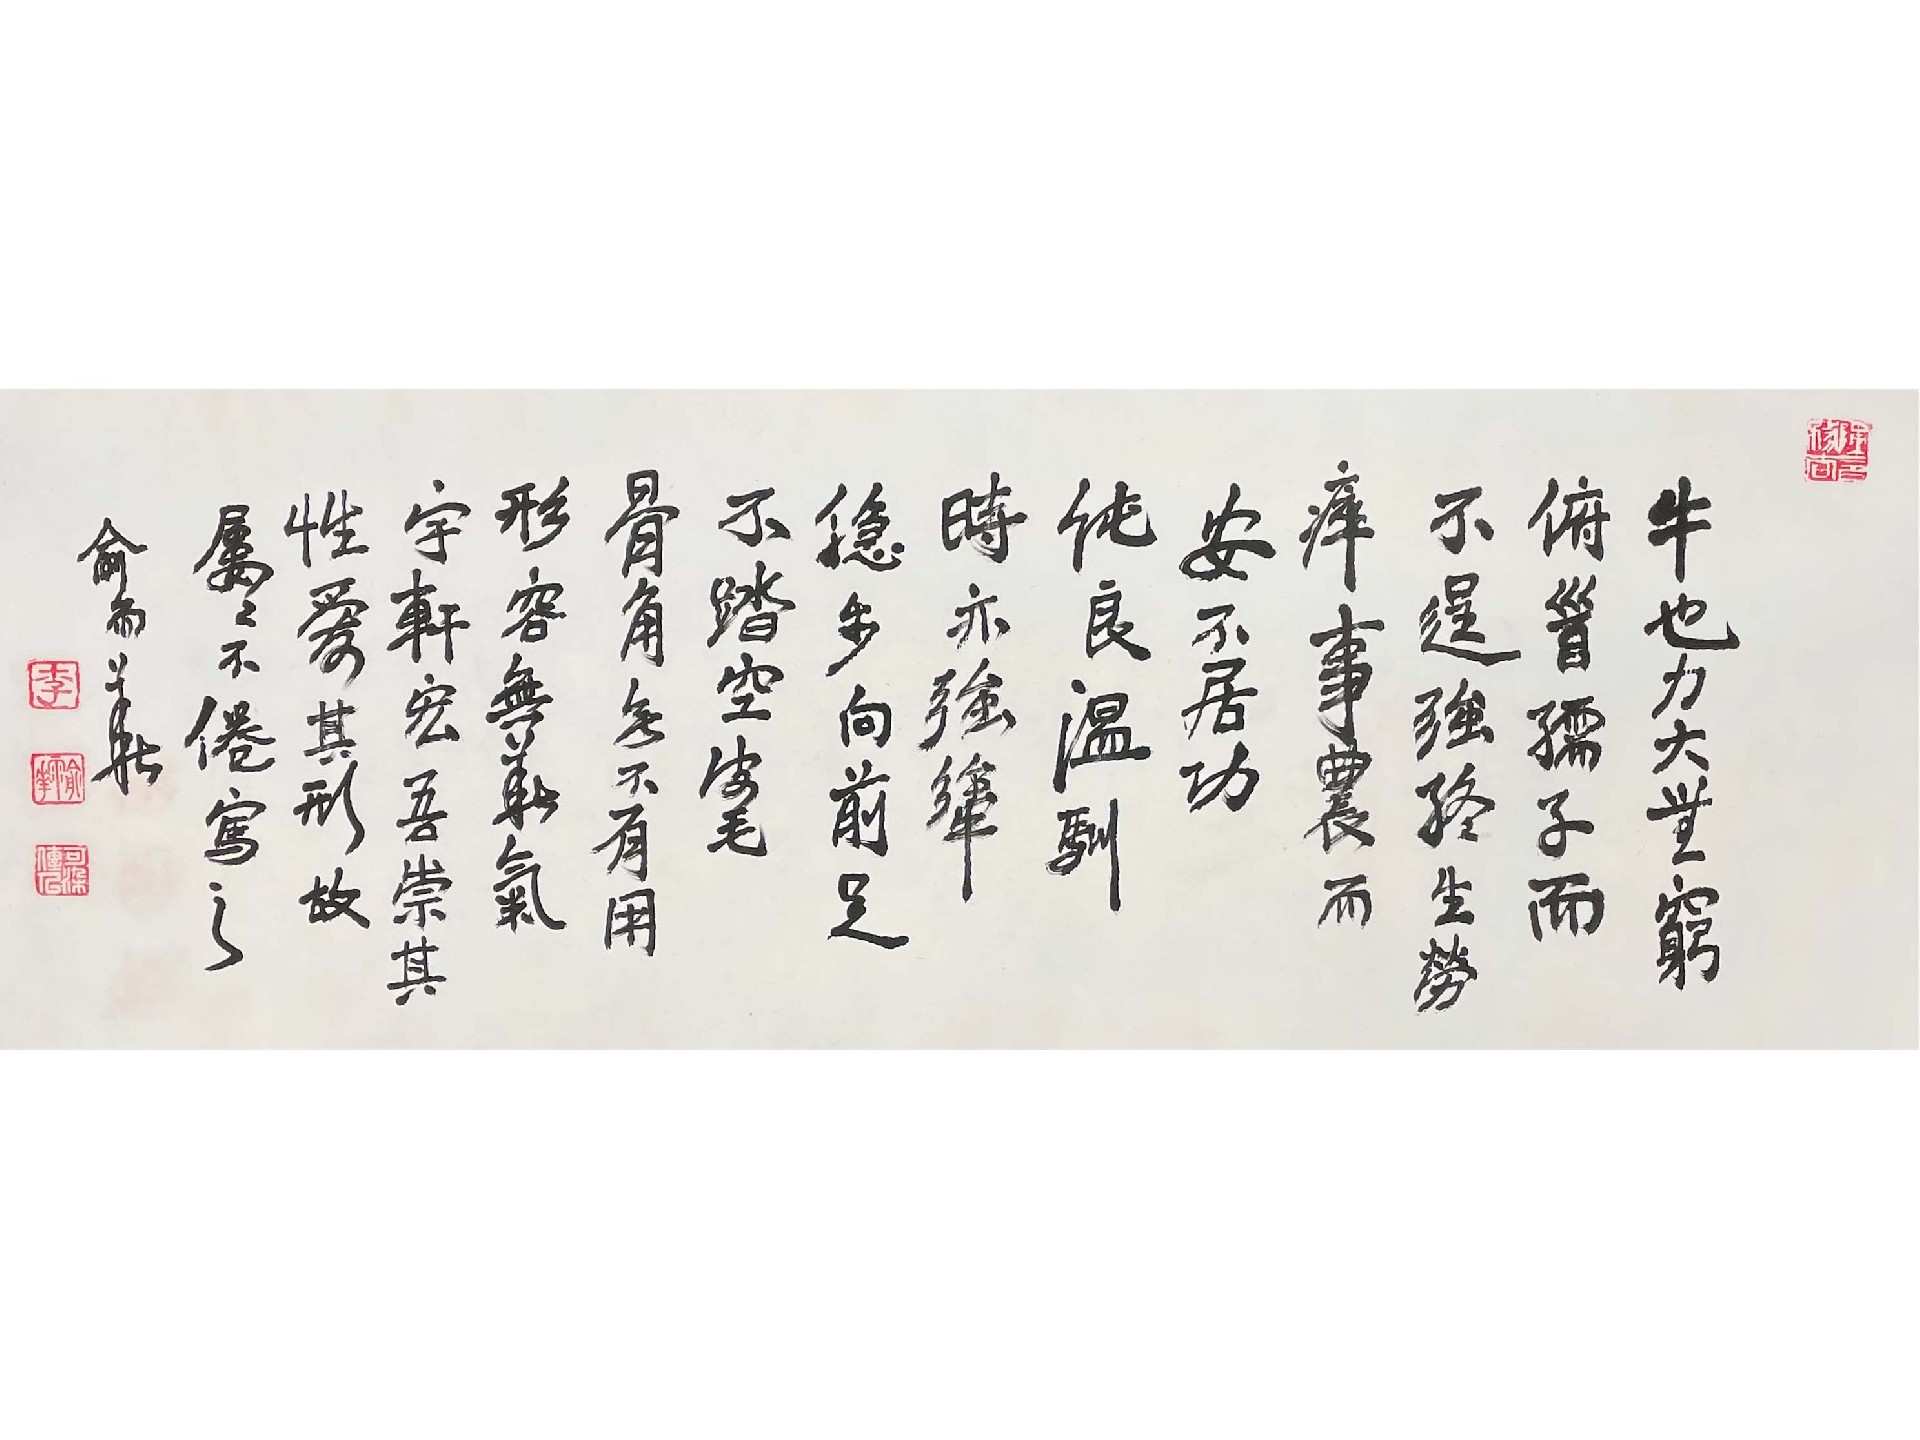 牛也力大無窮
俯首孺子而
不逞強終生勞
瘁事農而
安不居功
純良溫馴
時亦強犟
穩步向前足
不踏空皮毛
骨角無不有用
形容無華氣
宇軒宏吾崇其
性愛其形故
屢々不倦寫之
俞而華
李